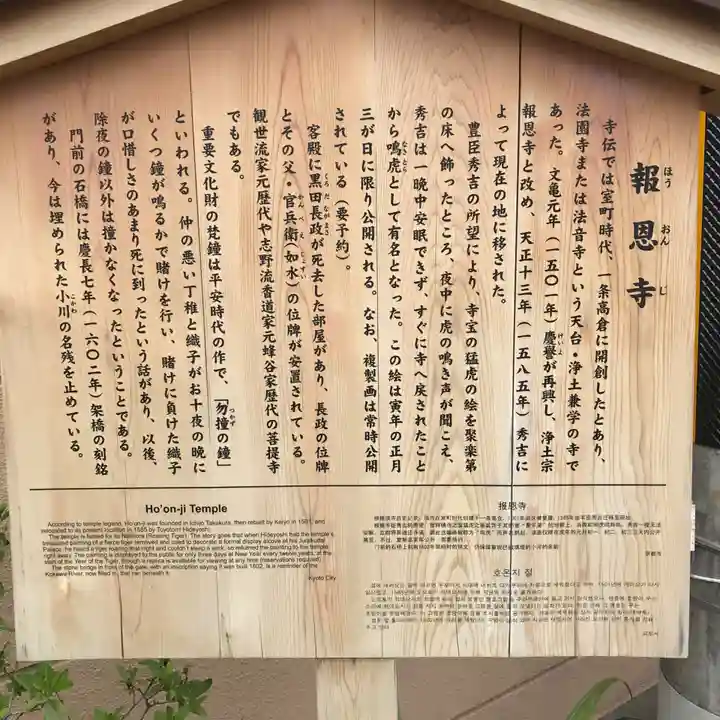 報恩寺
ほう おん じ
寺伝では室町時代、一条高倉に開創したとあり、
法園寺または法音寺という天台・浄土兼学の寺で
あった。文亀元年(一五〇一年)慶誉が再興し、浄土宗
けいよ
報恩寺と改め、天正十三年(一五八五年)秀吉に
よって現在の地に移された。
豊臣秀吉の所望により、寺宝の猛虎の絵を聚楽第
の床へ飾ったところ、夜中に虎の鳴き声が聞こえ、
秀吉は一晩中安眠できず、すぐに寺へ戻されたこと
から鳴虎として有名となった。この絵は寅年の正月
なきとら
三が日に限り公開される。なお、複製画は常時公開
されている(要予約)。
客殿に黒田長政が死去した部屋があり、長政の位牌
くろだながまさ
とその父・官兵衛(如水)の位牌が安置されている。
かんべえ じょすい
観世流家元歴代や志野流香道家元蜂谷家歴代の菩提寺
でもある。
重要文化財の梵鐘は平安時代の作で、「勿撞の鐘」
つかず
といわれる。仲の悪い丁稚と織子がお十夜の晩に
いくつ鐘が鳴るかで賭けを行い、賭けに負けた織子
が口惜しさのあまり死に到ったという話があり、以後、
除夜の鐘以外は撞かなくなったということである。
門前の石橋には慶長七年(一六〇二年)架橋の刻銘
があり、今は埋められた小川の名残を止めている。
こかわ
Ho'on-ji Temple
According to temple legend, Ho'on-ji was founded in Ichijo Takakura, then rebuilt by Keiyo in 1501, and
relocated to its present location in 1585 by Toyotomi Hideyoshi.
The temple is famed for its Nakitora (Roaring Tiger). The story goes that when Hideyoshi had the temple's
treasured painting of a fierce tiger removed and used to decorate a formal display alcove at his Jurakudai
Palace, he heard a tiger roaring that night and couldn't sleep a wink, so returned the painting to the temple
right away. The painting is displayed to the public for only three days at New Year every twelve years, at the
start of the Year of the Tiger, though a replica is available for viewing at any time (reservations required).
The stone bridge in front of the gate, with an inscription saying it was built 1602, is a reminder of the
Kokawa River, now filled in, that ran beneath it.
Kyoto City
报恩寺
京都市
호온지 절
교토시